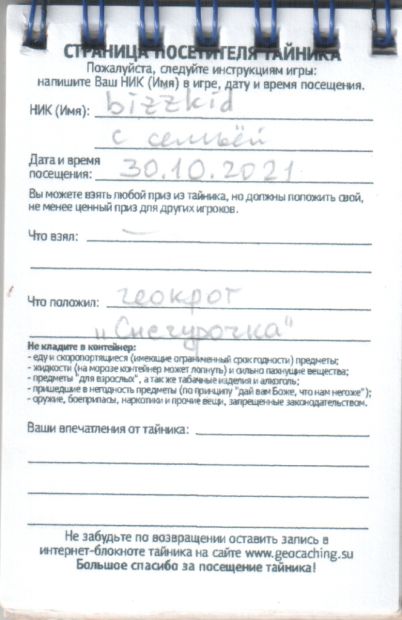 СТРАНИЦА ПОСЕТИТЕЛЯ ТАЙНИКА
Пожалуйста, следуйте инструкциям игры:
напишите Ваш НИК (Имя) в игре, дату и время посещения.
НИК (Имя): bizzkid
с семьёй
Дата и время
посещения: 30.10.2021
Вы можете взять любой приз из тайника, но должны положить свой,
не менее ценный приз для других игроков.
Что взял: —
Что положил: геокрот
"Снегурочка"
Не кладите в контейнер:
- еду и скоропортящиеся (имеющие ограниченный срок годности) предметы;
- жидкости (на морозе контейнер может лопнуть) и сильно пахнущие вещества;
- предметы "для взрослых", а так же табачные изделия и алкоголь;
- пришедшие в негодность предметы (по принципу "дай вам Боже, что нам негоже");
- оружие, боеприпасы, наркотики и прочие вещи, запрещенные законодательством.
Ваши впечатления от тайника:
Не забудьте по возвращении оставить запись в
интернет-блокноте тайника на сайте www.geocaching.su
Большое спасибо за посещение тайника!